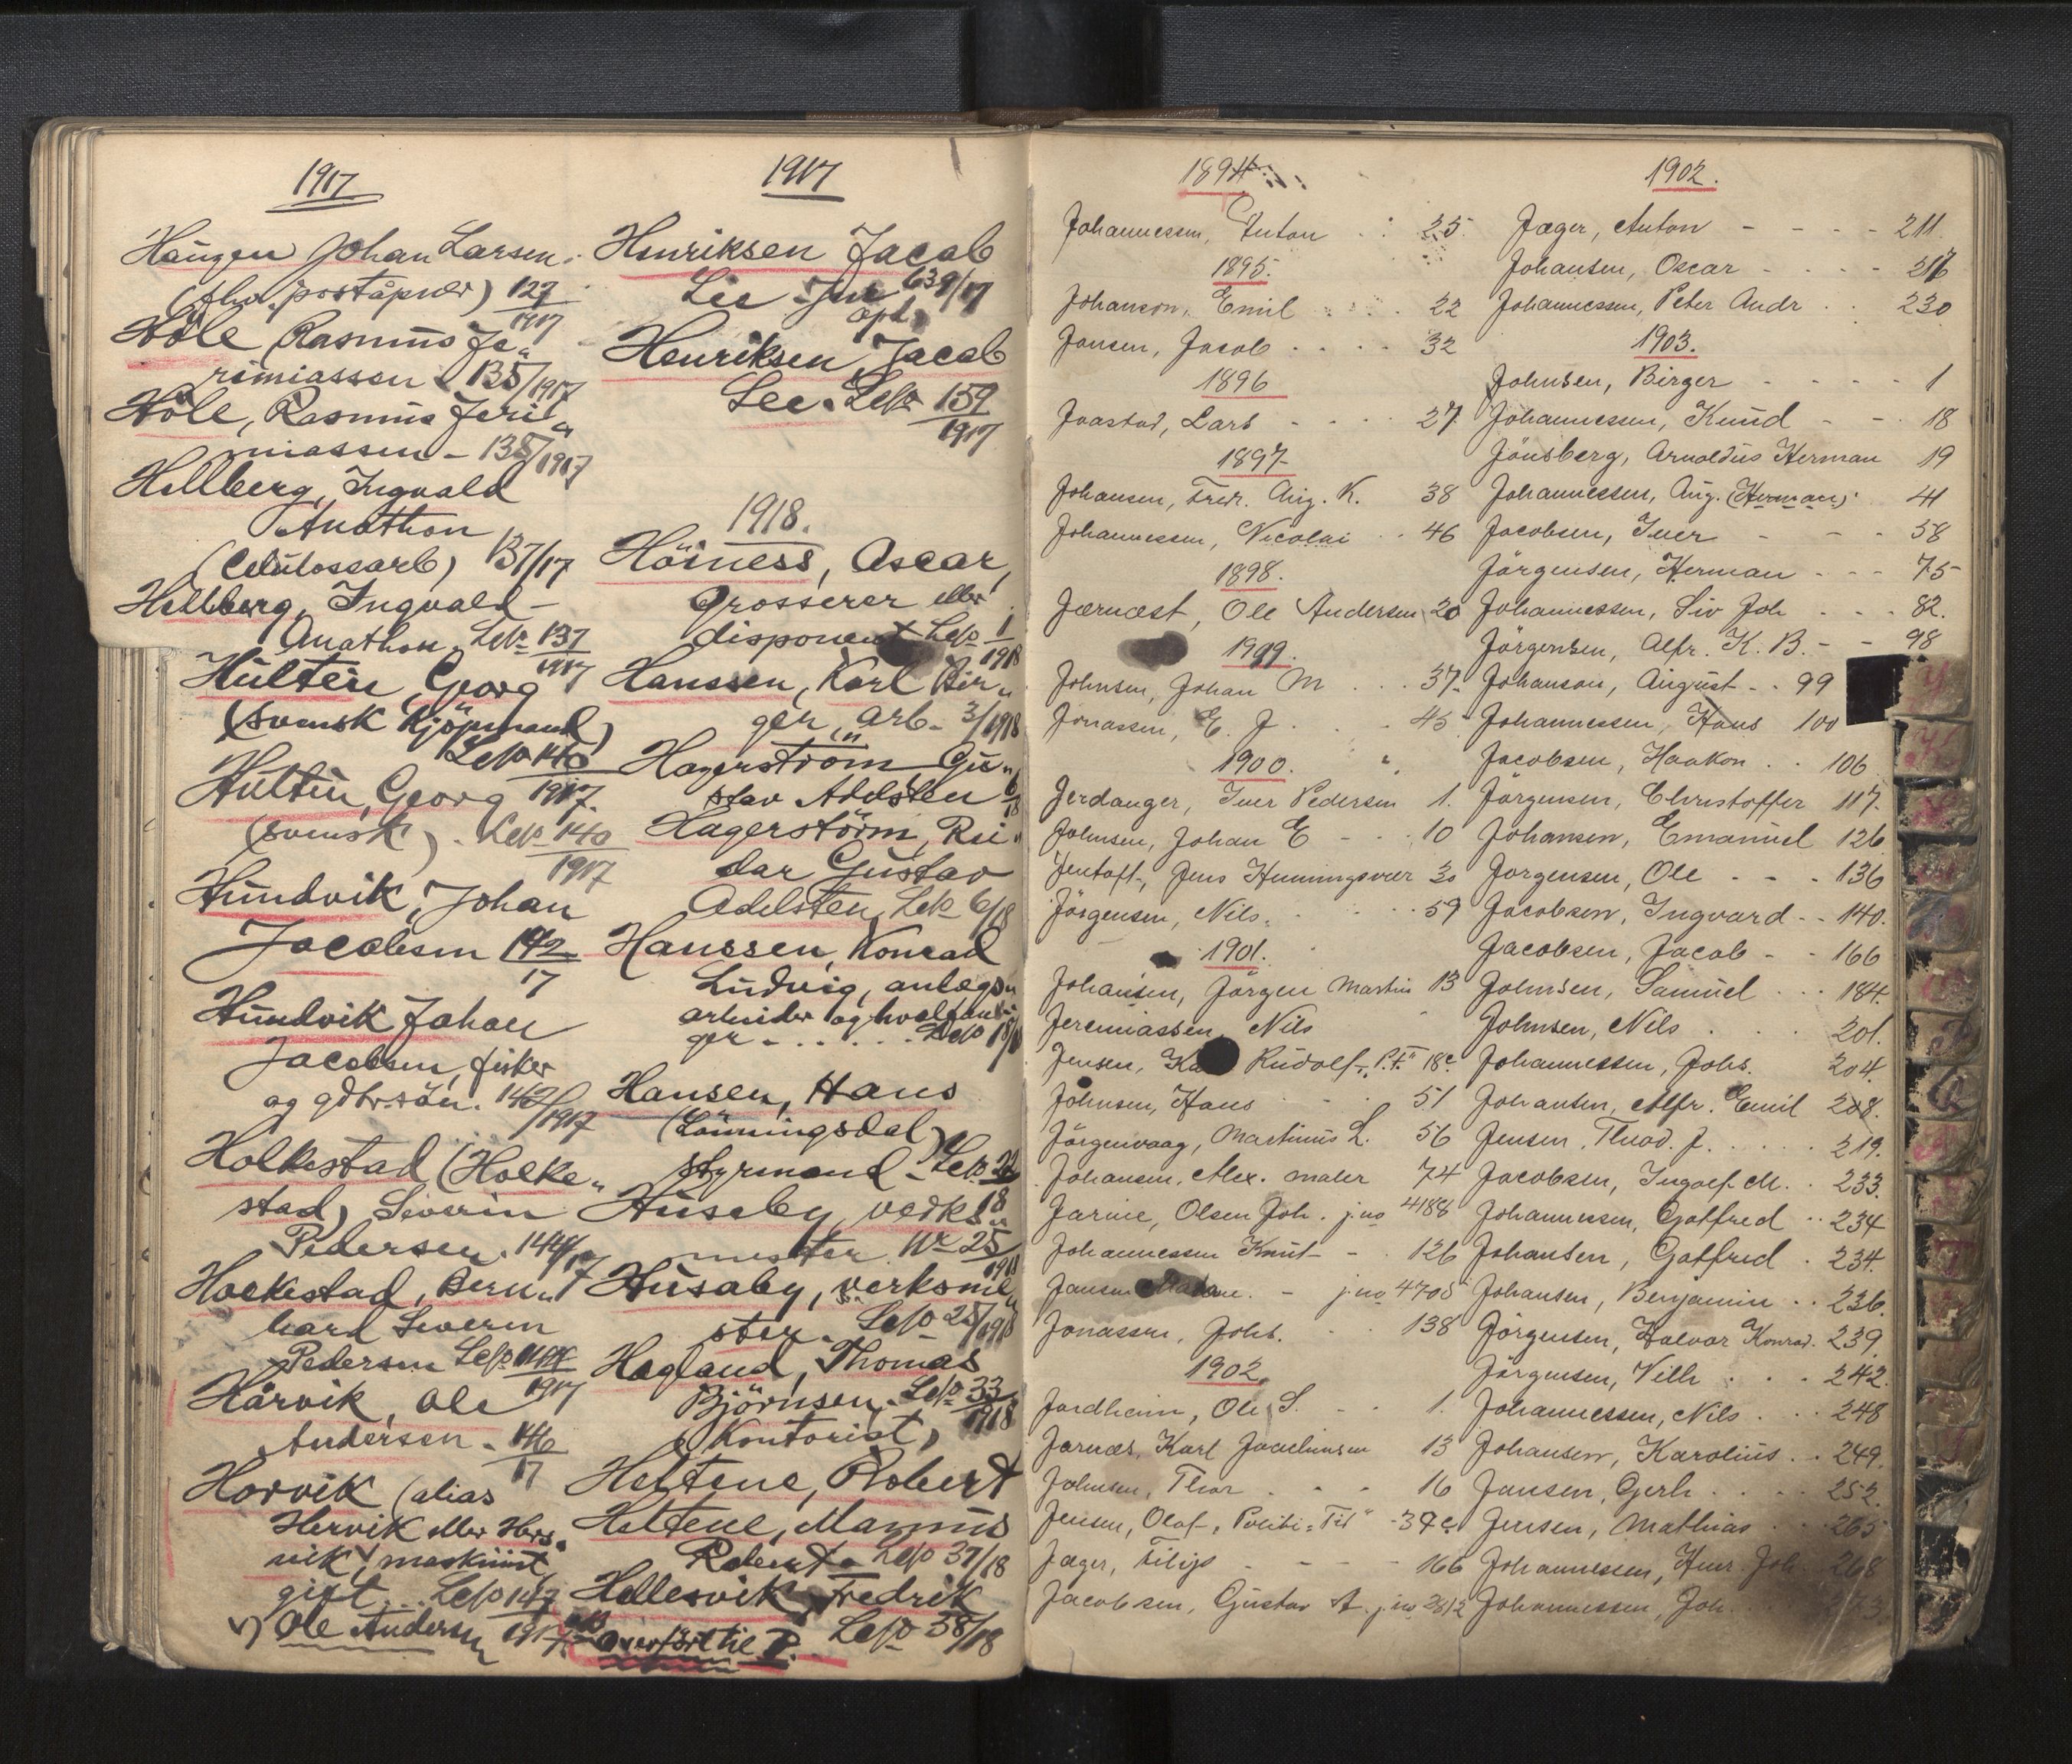 1917
Haugen Johan Larsen
poståpner) 127
1917
Höle Rasmus Je„
rimiassen 135/1917
Höle, Rasmus Jeri„
miassen - 135/1917
Hellberg, Ingvald
Anathon
(Celulosearb) 137/17
Hellberg, Ingvald
Anathon. 137
1917
Hultin, Georg
(svensk Kjöpmand)
140
1917.
Hultin, Georg
(svensk). 140
1917
Hundvik, Johan
Jacobsen 142
17
Hundvik Johan
Jacobsen, fisker
og gdbr.sön. 142/1917
Holkestad (Holke„
stad) Severin
Pedersen. 144/17
Holkestad, Bern„
hard Severin
Pedersen 144
1917
Hårvik, Ole
Andersen - 146
17
Horvik (alias
Hervik eller Hers„
vik, maskinist,
gift... 147
v) Ole Andersen 1917.
1917
Henriksen Jacob
Lie 639/17
Henriksen, Jacob
Lee. 159
1917
1918.
Höiness, Oscar,
Grosserer eller
disponent 1
1918
Hanssen, Karl Bir„
ger, arb. 3/1918
Hagerström Gu„
stav Adelsten 6
18
Hagerstörm, Rei„
dar Gustav
Adelsten, 6/18
Hanssen, Konrad
Ludvig, anlægs„
arbeider og hvalfan„
ger - . . . . .
Hansen, Hans
(Lönningsdal)
styrmand - 22
18
Husaby, verks„
mester. No 25
1918
Husaby, verksme„
ster. 25/1918
Hagland, Thomas
Björnsen. 33
1918
(Kontorist)
Heltene, Robert
Heltene, Magnus
Robert - 37/18
Hellesvik, Fredrik
38/18
Overfört til P.
1894
Johannessen, Anton 25.
1895.
Johanson, Emil 22
Jansen, Jacob 32
1896
Jaastad, Lars 27
1897
Johansen, Fredr. Aug. K. 38
Johannessen, Nicolai 46
1898.
Jærnæst, Ole Andersen 20
1899.
Johnsen, Johan M 37
Jonassen, E. J. 45
1900.
Jerdanger, Iver Pedersen 1.
Johnsen, Johan E 10
Jentoft, Jens Henningsvær 30
Jörgensen, Nils. 59
1901.
Johansen, Jörgen Martin 13
Jeremiassen, Nils
Jensen, Rudolf P.t." 18c
Johnsen, Hans 51
Jörgenvaag, Martinus L. 56
Johansen, Alex. maler 74
Jarvie, Olsen Joh. jno 4188
Johannessen Knut 126
Jansen - jno 4705
Jonassen, Johs. 138
1902.
Jordheim, Ole S. 1.
Jarnæs, Karl Joachimsen 13
Johnsen, Thor 16
Jensen, Olaf, "Politi-Tit" - 39c
Jæger, Filip 166
Jacobsen, Gustav A. jno 2812
1902.
Jæger, Anton 211.
Johansen, Oscar 217
Johannessen, Peter Andr 230
1903.
Johnsen, Birger 1
Johannessen, Knud 18
Jönsberg, Arnoldus Herman 19
Johannessen, Aug. (Herman) 41
Jacobsen, Iver 58
Jörgensen, Herman 75
Johannessen, Siv Joh 82.
Jörgensen, Alfr. K. B. 98
Johanson, August 99
Johannessen, Hans 100
Jacobsen, Haakon 106
Jörgensen, Christoffer 117.
Johansen, Emanuel 126
Jorgensen, Ole 136
Jacobsen, Ingvard 140.
Jacobsen, Jacob 166
Johnsen, Samuel 184.
Johnsen, Nils 201.
Johannessen, Johs. 204.
Johansen, Alfr. Emil 208.
Jensen, Theod. J. 219.
Jacobsen, Ingolf M. 233.
Johannessen, Gotfred 234
Johansen, Gotfred 234.
Johansen, Benjamin 236.
Jörgensen, Halvor Konrad. 239.
Jörgensen, Vilh 242.
Johannessen, Nils 248
Johansen, Karolius 249.
Jansen, Gerh 252.
Jensen, Mathias 265
Johannessen, Henr. Joh 268
Johannessen, Joh.